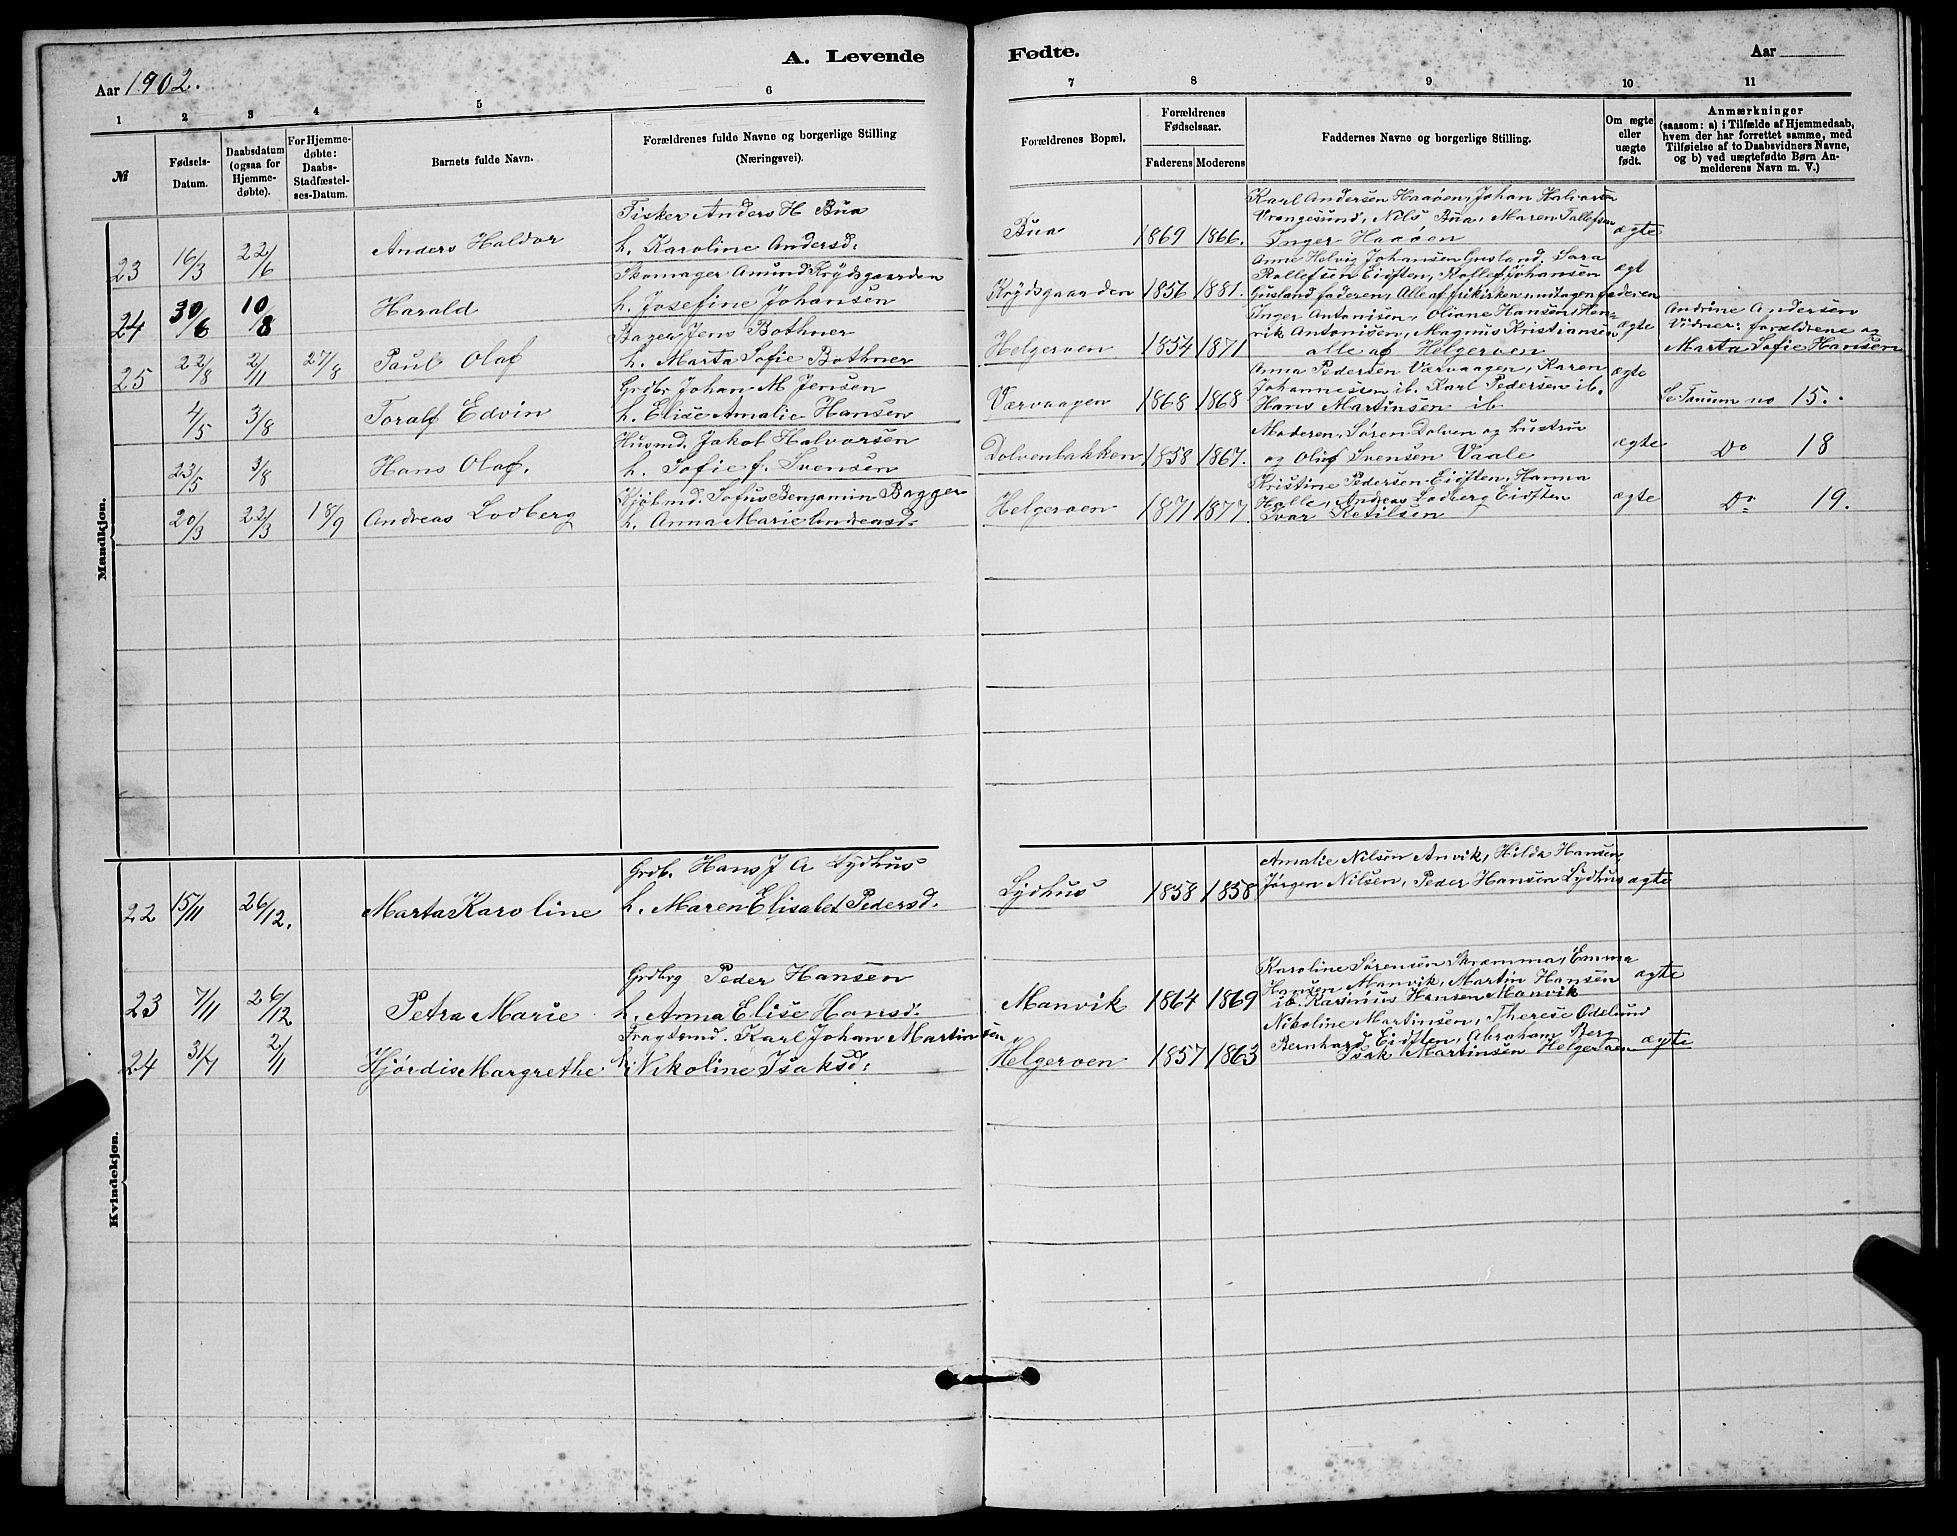 A. Levende
Fødte.
Aar 1902.
Aar
1 2 3 4 5 6 7 8 9 10 11
№
Fødsels-Datum.
Daabsdatum (ogsaa for Hjemmedøbte).
For Hjemmedøbte: Daabs-Stadfæstelses-Datum.
Barnets fulde Navn.
Forældrenes fulde Navne og borgerlige Stilling (Næringsvei).
Forældrenes Bopæl.
Forældrenes Fødselsaar.
Faderens Moderens
Faddernes Navne og borgerlige Stilling.
Om ægte eller uægte født.
Anmærkninger
(saasom: a) i Tilfælde af Hjemmedaab,
hvem der har forrettet samme, med
Tilføielse af to Daabsvidners Navne,
og b) ved uægtefødte Børn Anmelderens Navn m. V.)
Mandkjøn.
23 16/3 22/6 Anders Haldor
Fisker Anders H Bua
h. Karoline Andersd:
Bua 1869 1866.
Karl Andersen Haaøen, Johan Halvorsen
Vrangesund, Nils Bua, Maren Tallefsen
Inger Haaøen
ægte
24 30/6 10/8 Harald
Skomager Amund Røydsgaarden
h. Josefine Johansen
Røydsgaarden 1856 1881.
Anne Helvig Johansen Gusland, Sara
Rollefsen Eidsten, Rollef Johansen
Gusland faderen, Alle af frikirken undtagen faderen
ægt
25 22/8 2/11 27/8 Paul Olaf
Bager Jens Bothner
h. Marta Sofie Bothner
Helgeroen 1854 1871
Inger Antonisen, Oliane Hansen, Hen-
rik Antonisen, Magnus Kristiansen
alle af Helgeroen
ægte
Andrine Andersen
Vidner: forældrene og
Marta Sofie Hansen
4/5 3/8 Toralf Edvin
Grdbr Johan M Jensen
h. Elise Amalie Hansen
Værvaagen 1868 1868
Anna Pedersen Værvaagen, Karen
Johannessen ib. Karl Pedersen ib.
Hans Martinsen ib
ægte
Se Tanum no 15.
23/5 3/8 Hans Olaf.
Husmd. Jakob Halvorsen
h. Sofie f. Svensen
Dolvenbakken 1858 1867.
Moderen, Søren Dolven og hustru
og Oluf Svensen Vaale
ægte
Do 18
20/3 22/3 18/9 Andreas Lodberg
Kjøbmd. Sofus Benjamin Bagger
h. Anna Marie Andreasd:
Helgeroen 1871 1877.
Kristine Pedersen Eidsten, Hanna
Halle, Andreas Lodberg Eidsten
Ivar Ketilsen
ægte
Do 19.
Kvindekjøn.
22 15/11 26/12. Marta Karoline
Grdb. Hans J A Lydhus
h. Maren Elisabet Pedersd.
Lydhus 1858 1858
Amalie Nilsen Anvik, Hilda Hansen
Jørgen Nilsen, Peder Hansen Lydhus
ægte
23 7/11 26/12 Petra Marie
Grdbrg Peder Hansen
h. Anna Elise Hansd.
Manvik 1864 1869
Karoline Sørensen Skramma, Emma
Hansen Manvik, Martin Hansen
ib. Karinius Hansen Manvik
ægte
24 31/7 2/11 Hjørdis Margrethe
Fragtemd. Karl Johan Martinsen
h. Nikoline Isaksd:
Helgeroen 1857 1863
Nikoline Martinsen, Therese Odelund
Bernhard Eidsten, Abraham Berg
Isak Martinsen Helgeroen
ægte